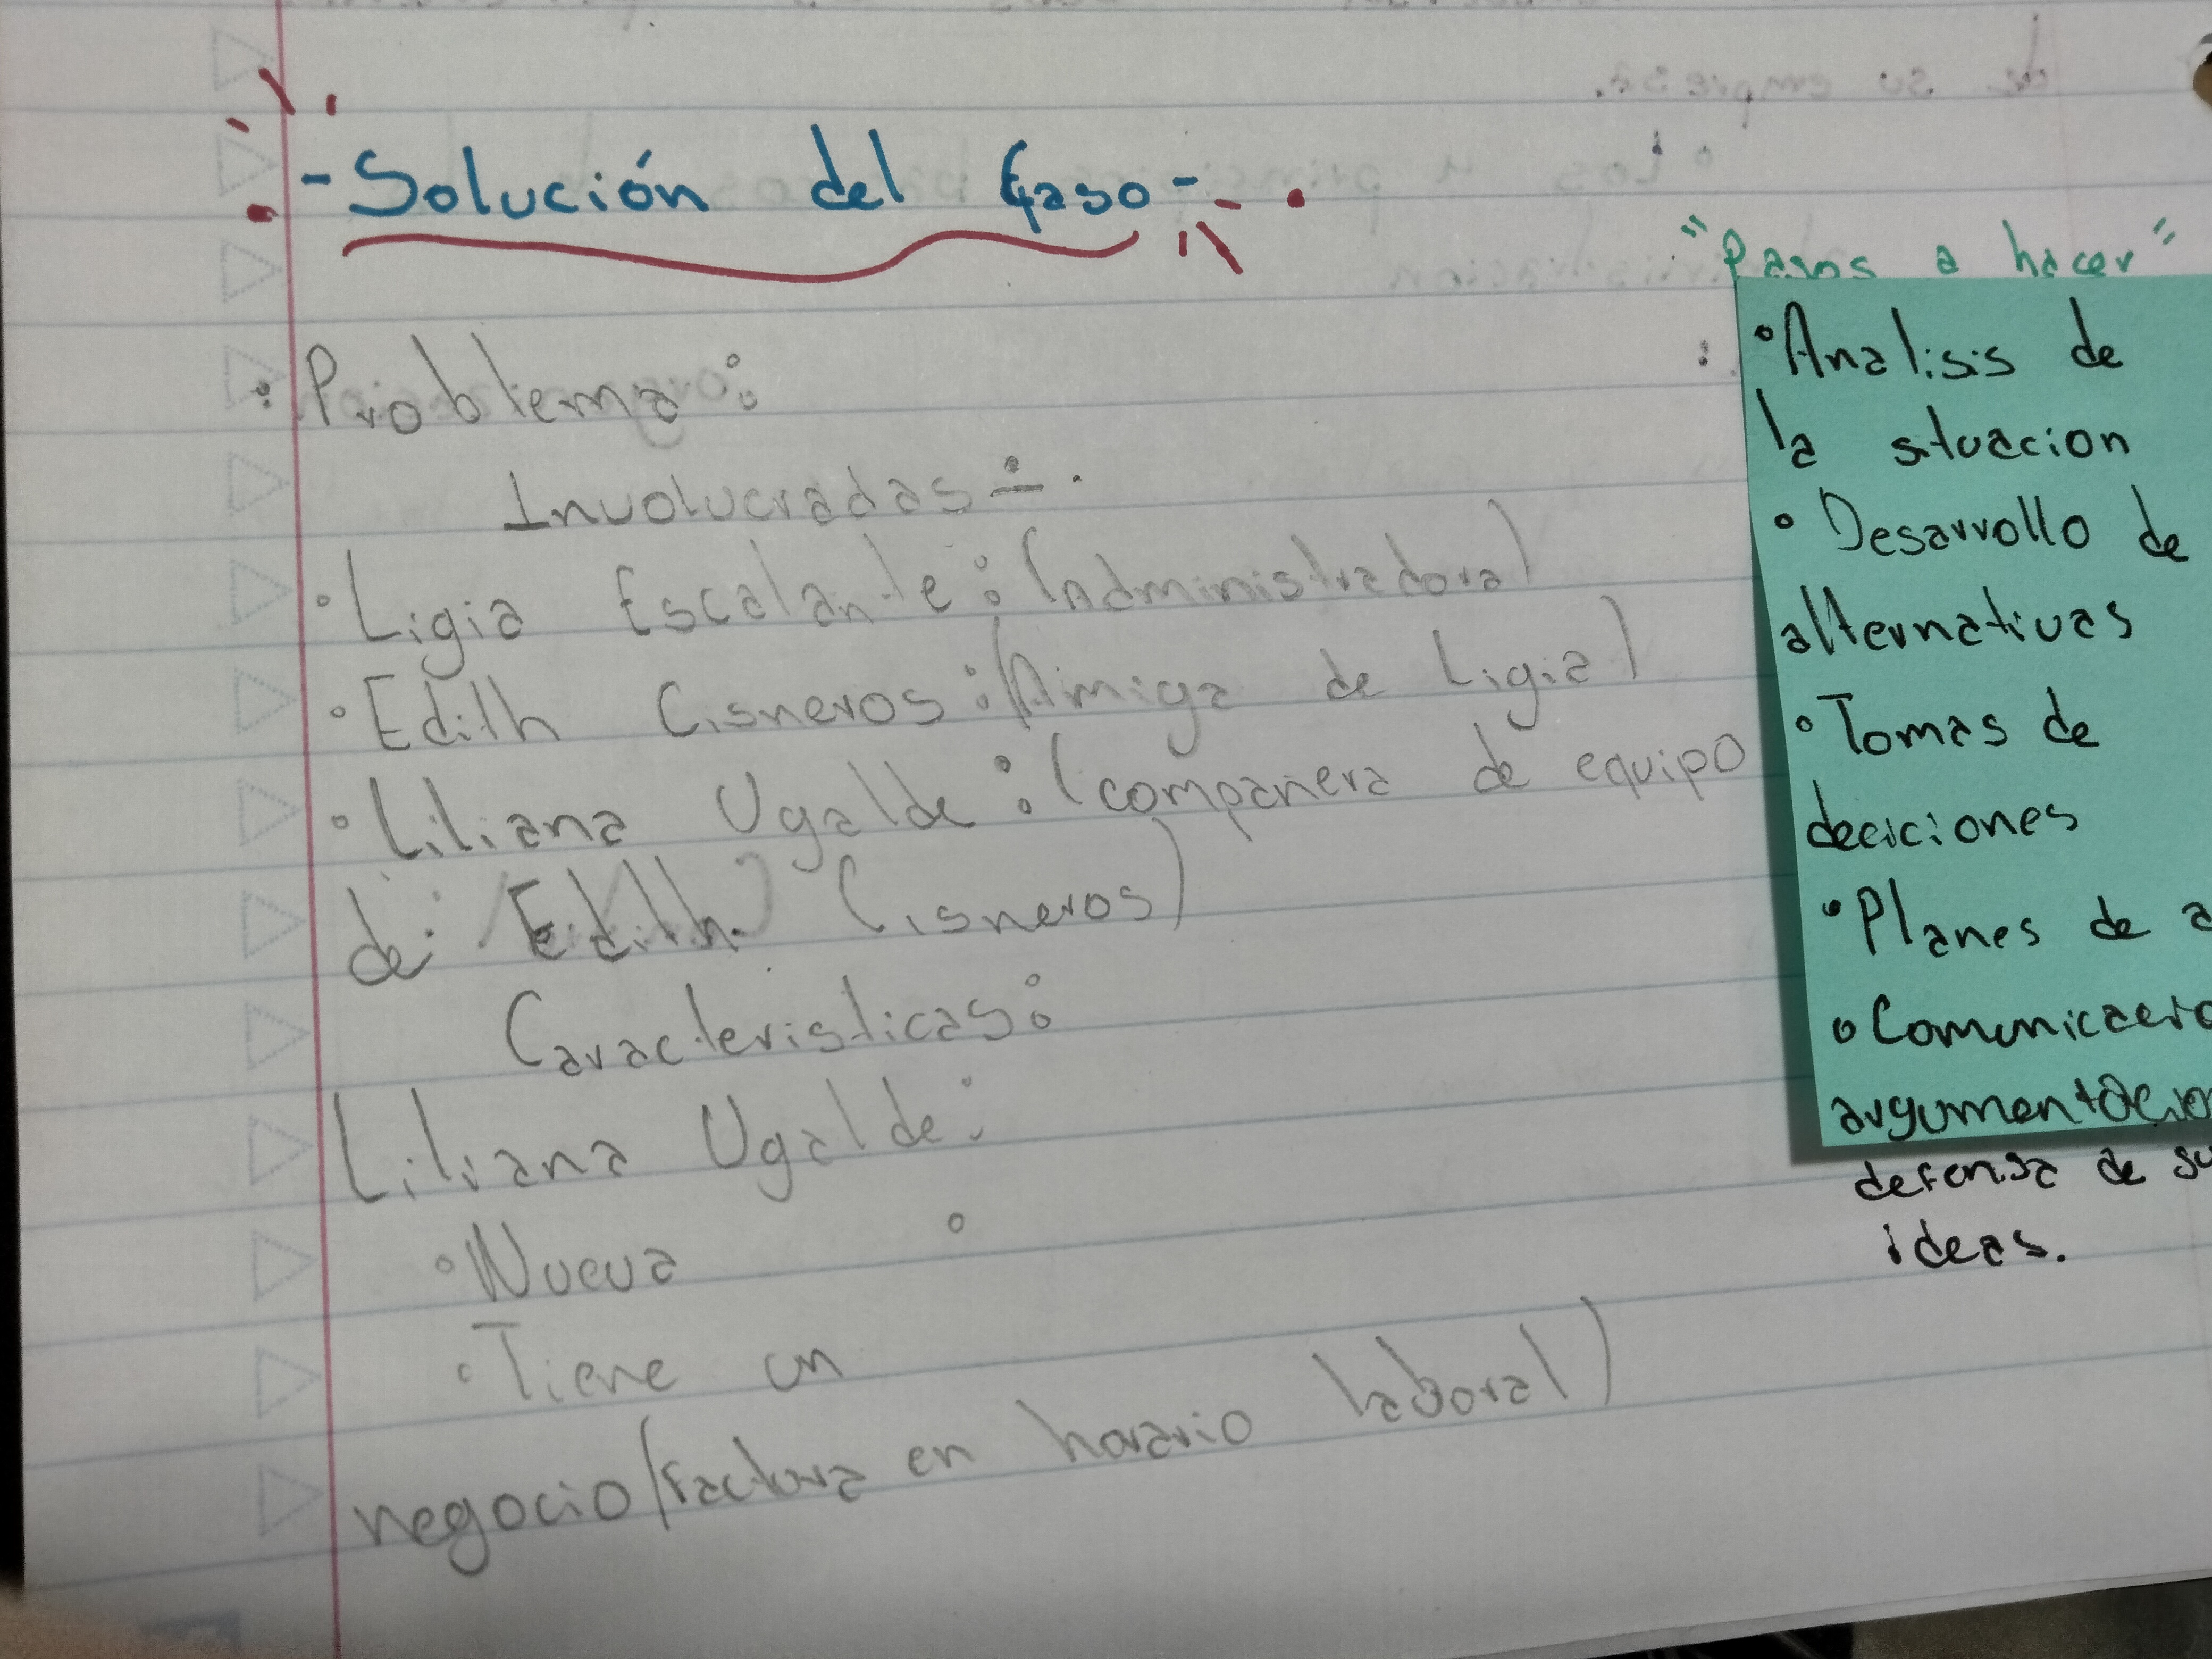 -Solución del Caso-
Problema:
Involucradas:
•Ligia Escalante: (Administradora)
•Edith Cisneros: (Amiga de Ligia)
•Liliana Ugalde: (companera de equipo
de: Edith Cisneros)
Caracteristicas:
Liliana Ugalde:
•Nueva
•Tiene un
negocio/factura en horario laboral)
"Pasos a hacer"
•Analisis de
la situacion
•Desarrollo de
alternativas
•Tomas de
deciciones
•Planes de a
•Comunicacio
argumentacion
defensa de su
ideas.
de su empresa.
•Los 4 principios